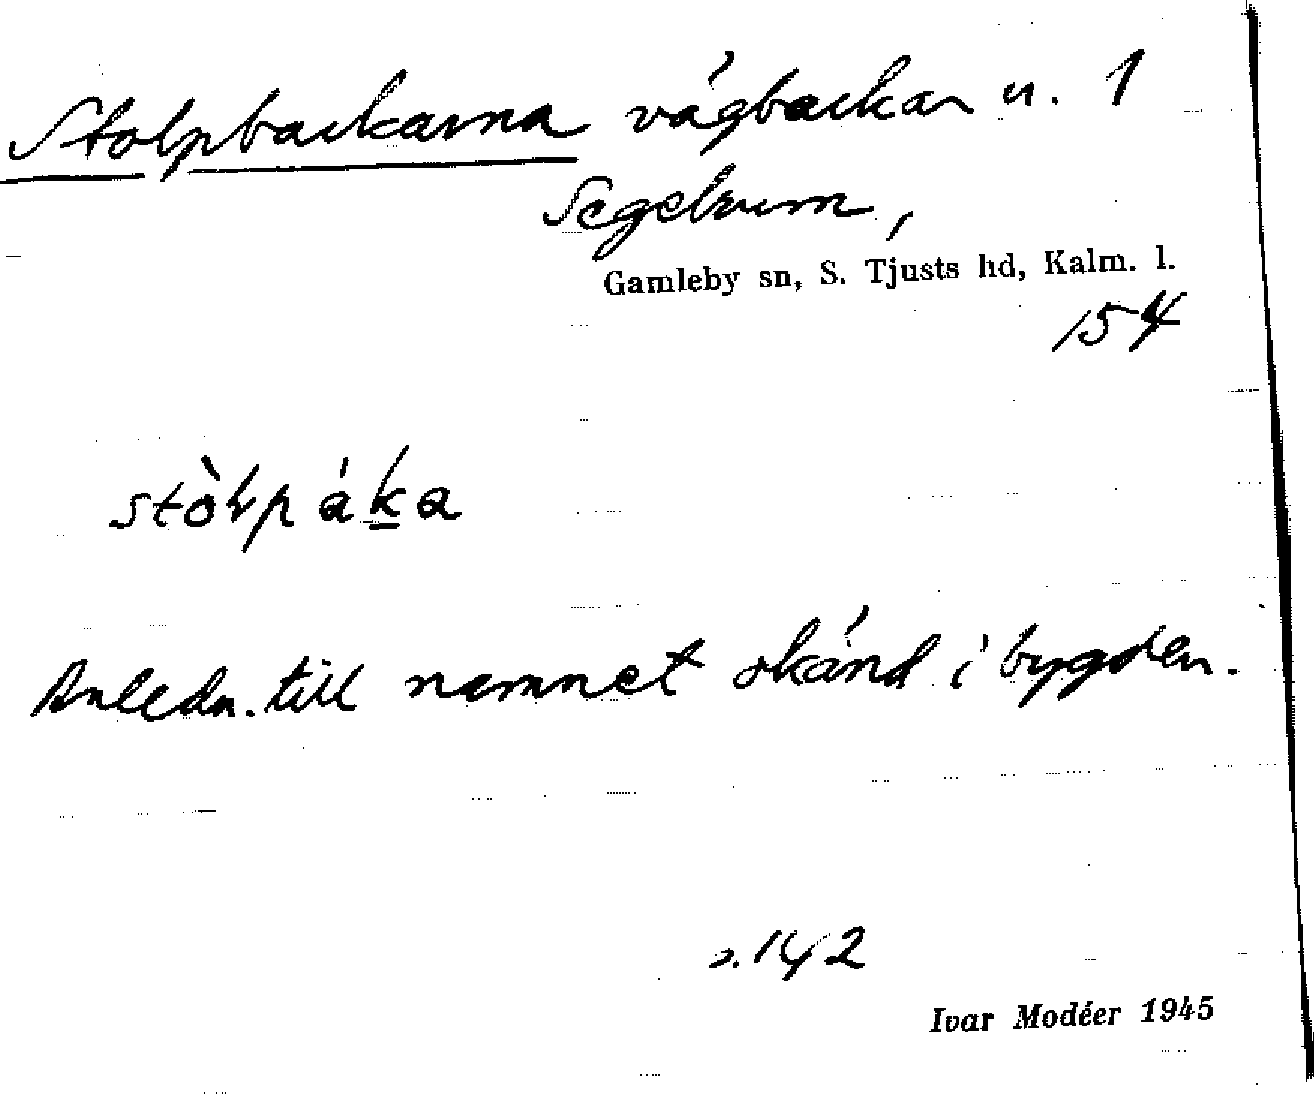 Stolpbackarna vägbackar u. 1
Segelrum,
Gamleby sn, S. Tjusts hd, Kalm. l.
154
stòlpáka
Anledn. till namnet okänd i bygden.
s. 142
Ivar Modéer 1945